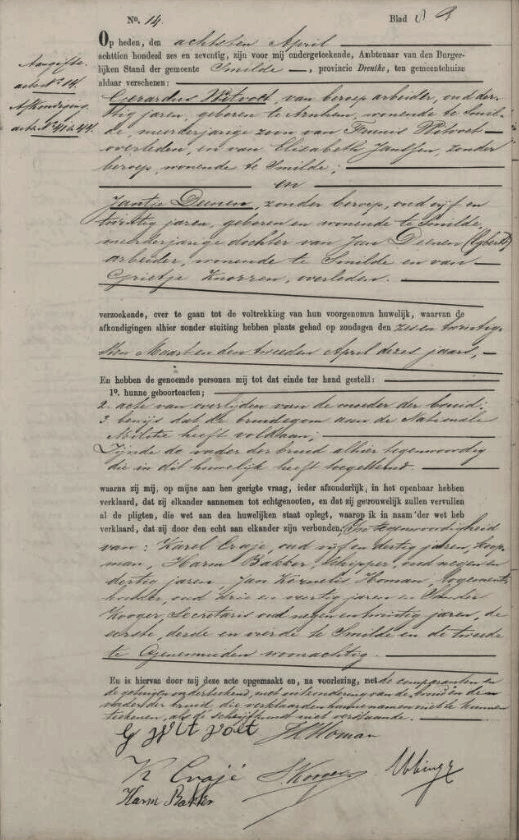 No. 14.
Blad 8 a
Aangifte
acte No. 14.
Afkondiging
acte No.
Op heden, den achtsten April
achttien honderd zes en zeventig, zijn voor mij ondergeteekende, Ambtenaar van den Burger-
lijken Stand der gemeente Smilde, provincie Drenthe, ten gemeentehuize
aldaar verschenen:
Gerardus Witvolt, van beroep arbeider, oud der-
tig jaren, geboren te Arnhem, wonende te Smil-
de, meerderjarige zoon van Witvoet
overleden, en van Elizabeth Janssen, zonder
beroep, wonende te Smilde;
en
Jantje Deenen, zonder beroep, oud vijf en
twintig jaren, geboren en wonende te Smilde,
meerderjarige dochter van Jan Deenen (Egberts)
arbeider, wonende te Smilde en van
Grietje Knorren, overleden.
verzoekende, over te gaan tot de voltrekking van hun voorgenomen huwelijk, waarvan de
afkondigingen alhier zonder stuiting hebben plaats gehad op zondagen den zes en twintig-
sten Maart en den tweeden April dezes jaars,
En hebben de genoemde personen mij tot dat einde ter hand gesteld:
1o. hunne geboorteacten;
2. acte van overlijden van de moeder der bruid;
3. bewijs dat de bruidegom aan de Nationale
Militie heeft voldaan;
Zijnde de vader der bruid alhier tegenwoordig
die in dit huwelijk heeft toegestemd.
waarna zij mij, op mijne aan hen gerigte vraag, ieder afzonderlijk, in het openbaar hebben
verklaard, dat zij elkander aannemen tot echtgenooten, en dat zij getrouwelijk zullen vervullen
al de pligten, die wet aan den huwelijken staat oplegt, waarop ik in naam der wet heb
verklaard, dat zij door den echt aan elkander zijn verbonden, In tegenwoordigheid
van: Karel Crajé, oud vijf en dertig jaren, koop-
man, Harm Bakker, schipper, oud negen en
dertig jaren, Jan Kornelis Homan, logement-
houder, oud drie en veertig jaren en Sander
Kooger, Secretaris oud negen en twintig jaren, de
eerste, derde en vierde te Smilde en de tweede
te Genemuiden woonachtig.
En is hiervan door mij deze acte opgemaakt en, na voorlezing, met de comparanten en
de getuigen onderteekend, met uitzondering van de bruid en den
vader der bruid, die verklaarden hunne namen niet te kunnen
teekenen, als de schrijfkunst niet verstaande.
G Witvolt
JK Homan
K Crajé
S. Kooger
Harm Bakker